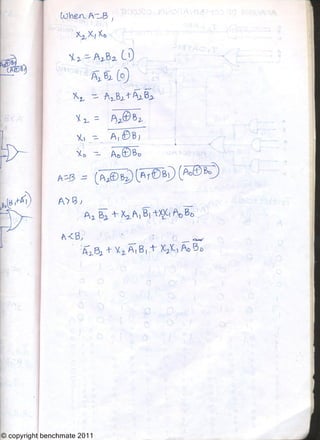 When A=B,
X₂ X₁ X₀
X₂ = A₂B₂ (1)
A̅₂ B̅₂ (0)
X₂ = A₂B₂ + A̅₂B̅₂
X₂ = \overline{A₂⊕B₂}
X₁ = \overline{A₁⊕B₁}
X₀ = \overline{A₀⊕B₀}
A=B = (\overline{A₂⊕B₂}) (\overline{A₁⊕B₁}) (\overline{A₀⊕B₀})
A>B,
A₂ B̅₂ + X₂ A₁ B̅₁ + X₂X₁ A₀ B̅₀
A<B,
A̅₂ B₂ + X₂ A̅₁ B₁ + X₂X₁ A̅₀ B₀
© copyright benchmate 2011